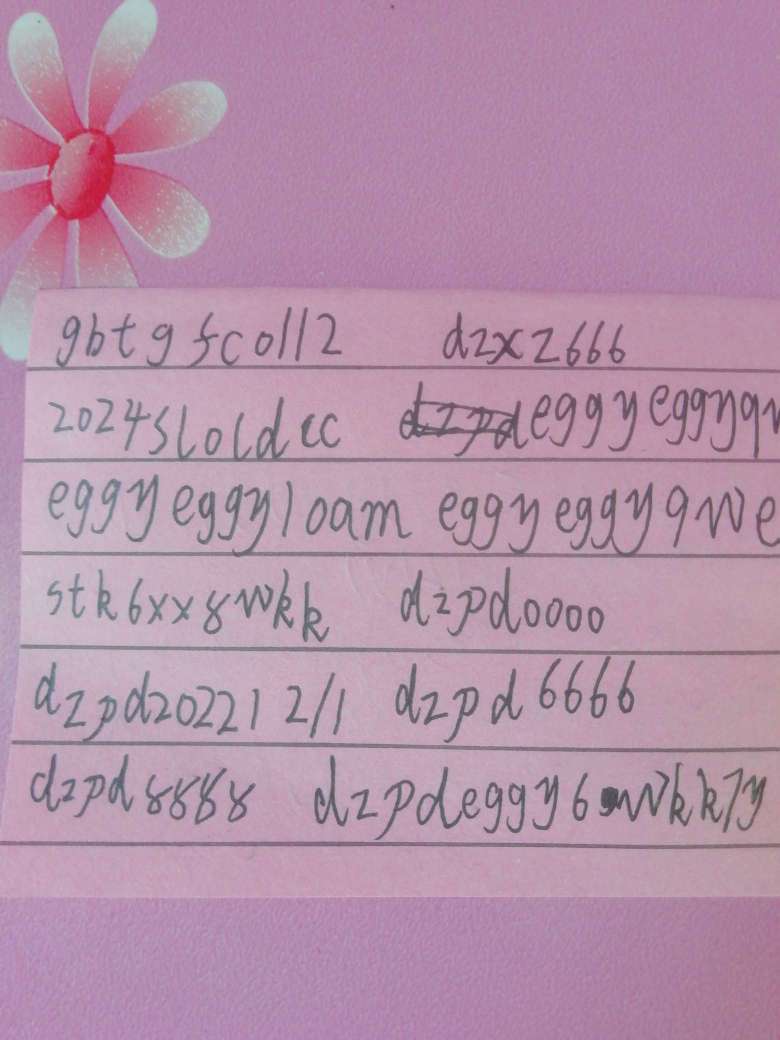 gbtgfcoll2 dzxz666
2024sloldcc eggyeggyqw
eggyeggyloam eggyeggyqwe
stk6xx8wkk dzpd0000
dzpd2022121 dzpd6666
dzpd8888 dzpdeggy6wkk7y